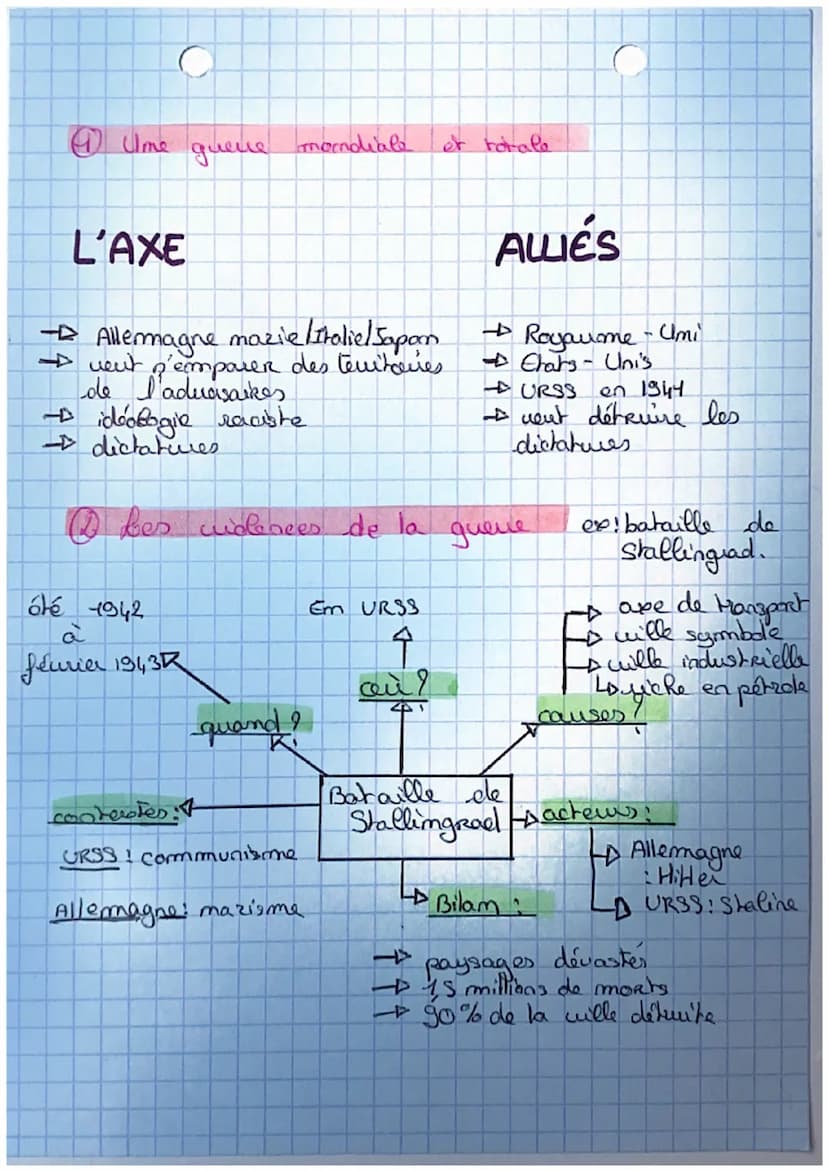 ① Une guerre mondiale et totale
L'AXE
→ Allemagne nazie/Italie/Japon
→ veut s'emparer des territoires
de l'adversaires
→ idéologie raciste
→ dictatures
ALLIÉS
→ Royaume-Uni
→ Etats-Unis
→ URSS en 1941
→ veut détruire les
dictatures
② Les violences de la guerre
ex: bataille de
Stallingrad.
été 1942
à
février 1943
quand ?
En URSS
où ?
→ axe de transport
→ ville symbole
→ ville industrielle
↳ riche en pétrole
causes !
Bataille de
Stallingrad
contextes :
URSS : communisme
Allemagne : nazisme
acteurs :
→ Allemagne
: Hitler
→ URSS : Staline
Bilan :
→ paysages dévastés
→ 1,5 millions de morts
→ 90% de la ville détruite